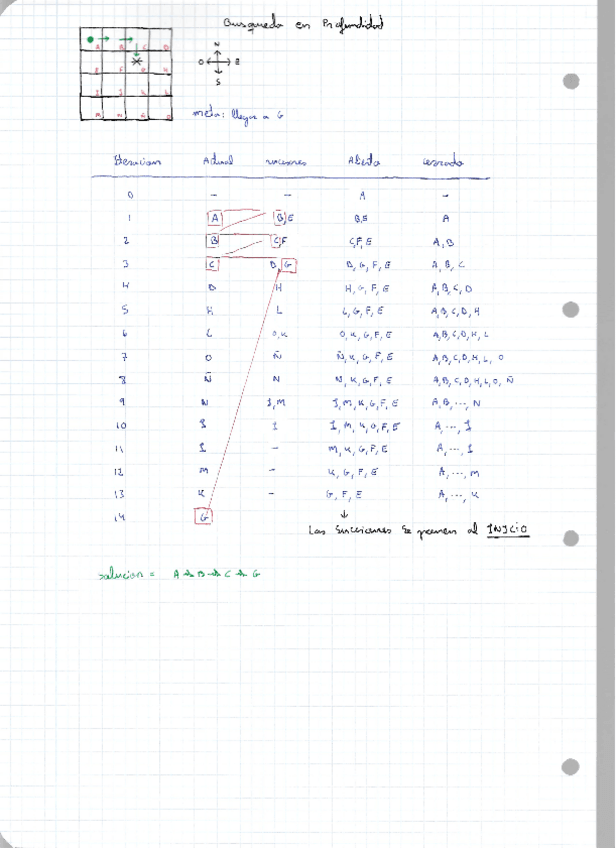 Busqueda en Profundidad
A B C D
N
O E
S
E F G H
I J K L
M N Ñ O
meta: llegar a G
Iteracion Actual sucesores Abierto cerrado
0 - - A -
1 A B,E B,E A
2 B C,F C,F,E A,B
3 C D,G D,G,F,E A,B,C
4 D H H,G,F,E A,B,C,D
5 H L L,G,F,E A,B,C,D,H
6 L O,K O,K,G,F,E A,B,C,D,H,L
7 O Ñ Ñ,K,G,F,E A,B,C,D,H,L,O
8 Ñ N N,K,G,F,E A,B,C,D,H,L,O,Ñ
9 N J,M J,M,K,G,F,E A,B,...,N
10 J I I,M,K,G,F,E A,...,J
11 I - M,K,G,F,E A,...,I
12 M - K,G,F,E A,...,M
13 K - G,F,E A,...,K
14 G
Los sucesores se ponen al INICIO
solucion = A → B → C → G